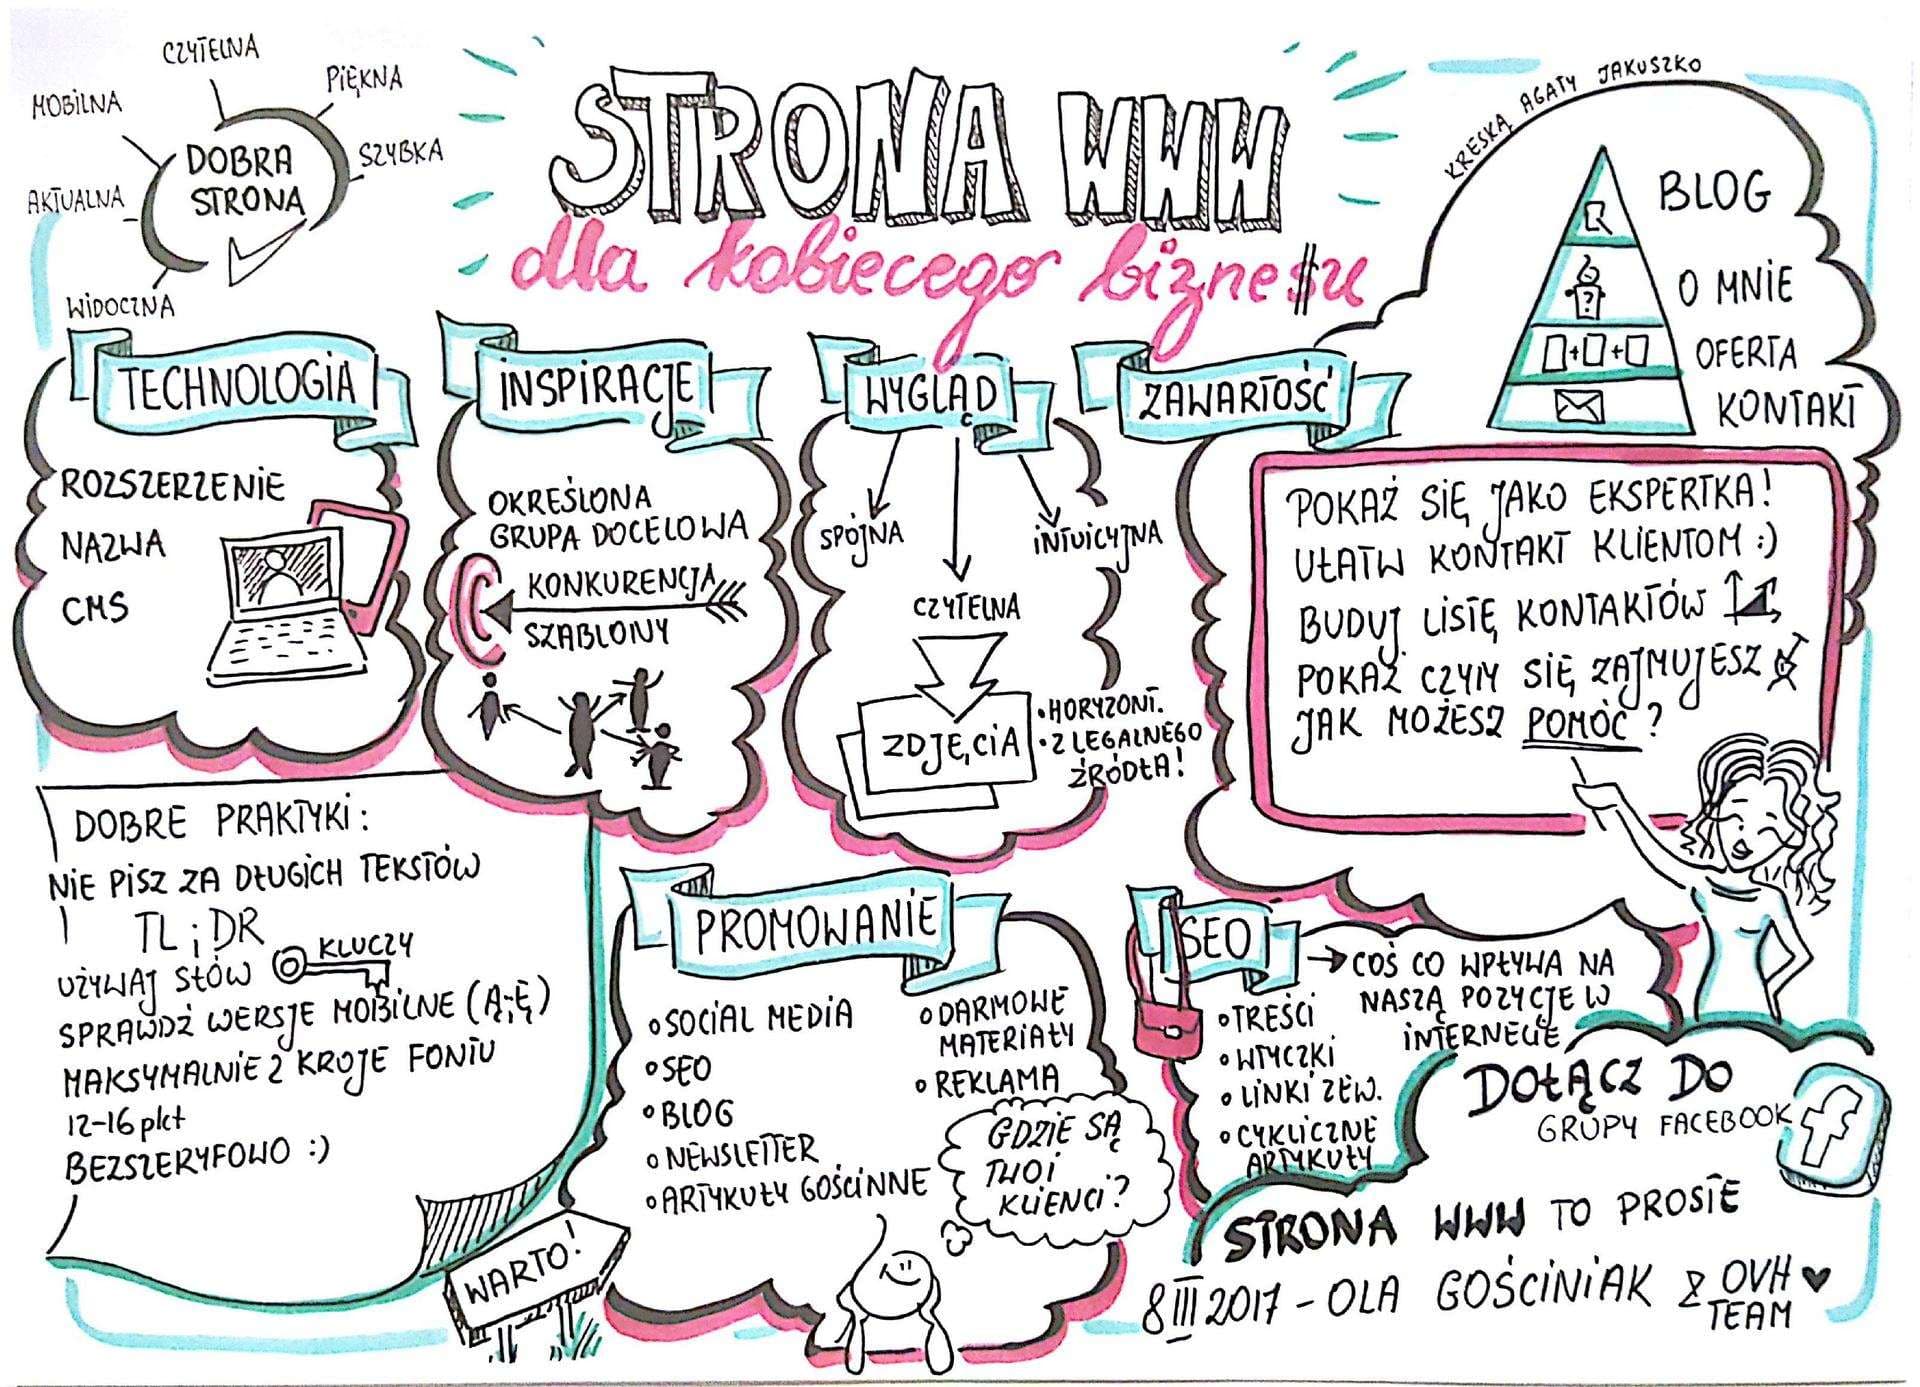 STRONA WWW
dla kobiecego bizne$u
KRESKĄ AGATY JAKUSZKO
CZYTELNA
PIĘKNA
MOBILNA
SZYBKA
DOBRA
STRONA
AKTUALNA
WIDOCZNA
TECHNOLOGIA
ROZSZERZENIE
NAZWA
CMS
INSPIRACJE
OKREŚLONA
GRUPA DOCELOWA
KONKURENCJA
SZABLONY
WYGLĄD
SPÓJNA
INTUICYJNA
CZYTELNA
ZDJĘCIA
• HORYZONT.
• Z LEGALNEGO
ŹRÓDŁA!
ZAWARTOŚĆ
BLOG
O MNIE
?
OFERTA
KONTAKT
POKAŻ SIĘ JAKO EKSPERTKA!
UŁATW KONTAKT KLIENTOM :)
BUDUJ LISTĘ KONTAKTÓW
POKAŻ CZYM SIĘ ZAJMUJESZ
JAK MOŻESZ POMÓC?
DOBRE PRAKTYKI:
NIE PISZ ZA DŁUGICH TEKSTÓW
TL;DR
UŻYWAJ SŁÓW KLUCZY
SPRAWDŹ WERSJE MOBILNE (Ą;Ę)
MAKSYMALNIE 2 KROJE FONTU
12-16 pkt
BEZSZERYFOWO :)
WARTO!
PROMOWANIE
o SOCIAL MEDIA
o SEO
o BLOG
o NEWSLETTER
o ARTYKUŁY GOŚCINNE
o DARMOWE
MATERIAŁY
o REKLAMA
GDZIE SĄ
TWOI
KLIENCI?
SEO
COŚ CO WPŁYWA NA
NASZĄ POZYCJE W
INTERNECIE
o TREŚCI
o WTYCZKI
o LINKI ZEW.
o CYKLICZNE
ARTYKUŁY
DOŁĄCZ DO
GRUPY FACEBOOK
f
STRONA WWW TO PROSTE
8 III 2017 - OLA GOŚCINIAK Z OVH ♥
TEAM